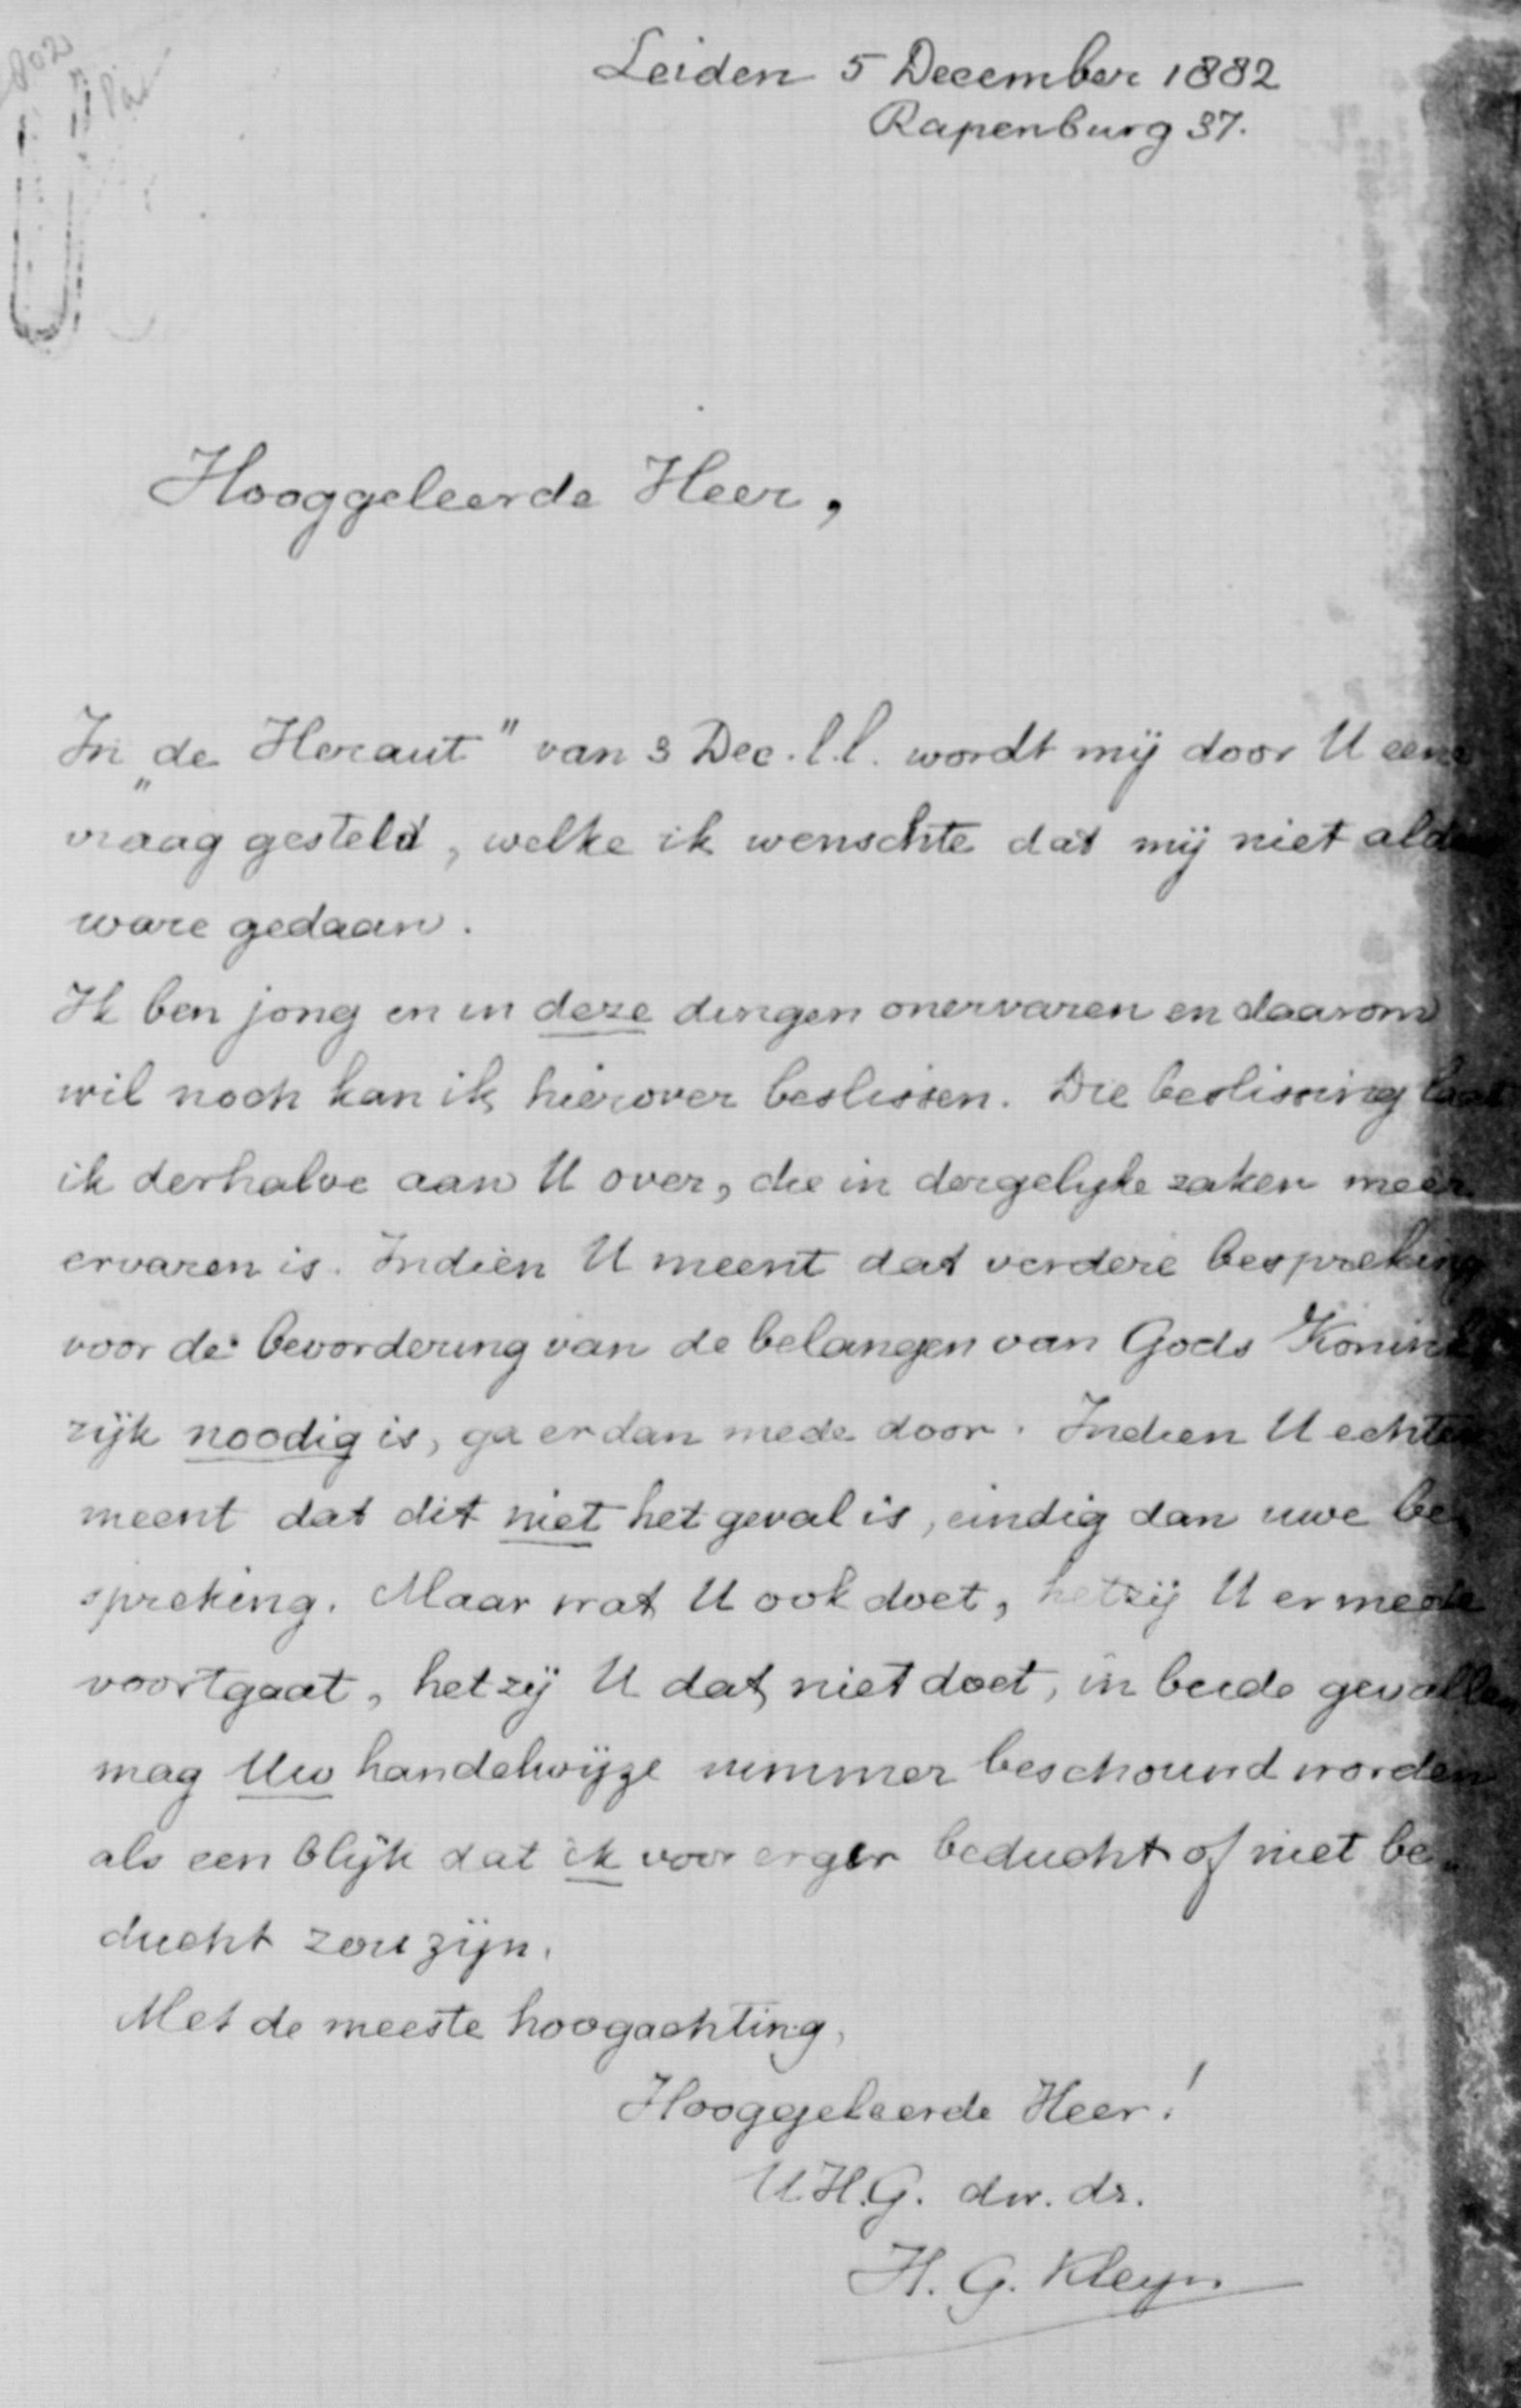 Leiden 5 December 1882
Rapenburg 37.
Hooggeleerde Heer,
In „de Heraut" van 3 Dec. l.l. wordt mij door U eene
vraag gesteld, welke ik wenschte dat mij niet aldus
ware gedaan.
Ik ben jong en in deze dingen onervaren en daarom
wil noch kan ik hierover beslissen. Die beslissing laat
ik derhalve aan U over, die in dergelyke zaken meer
ervaren is. Indien U meent dat verdere bespreking
voor de bevordering van de belangen van Gods Konink
rijk noodig is, ga er dan mede door. Indien U echter
meent dat dit niet het geval is, eindig dan uwe be„
spreking. Maar wat U ook doet, hetzij U er mede
voortgaat, hetzij U dat niet doet, in beide gevallen
mag Uw handelwijze nimmer beschouwd worden
als een blijk dat ik voor erger beducht of niet be„
ducht zou zijn.
Met de meeste hoogachting,
Hooggeleerde Heer!
U.H.G. dw. dr.
H. G. Kleyn